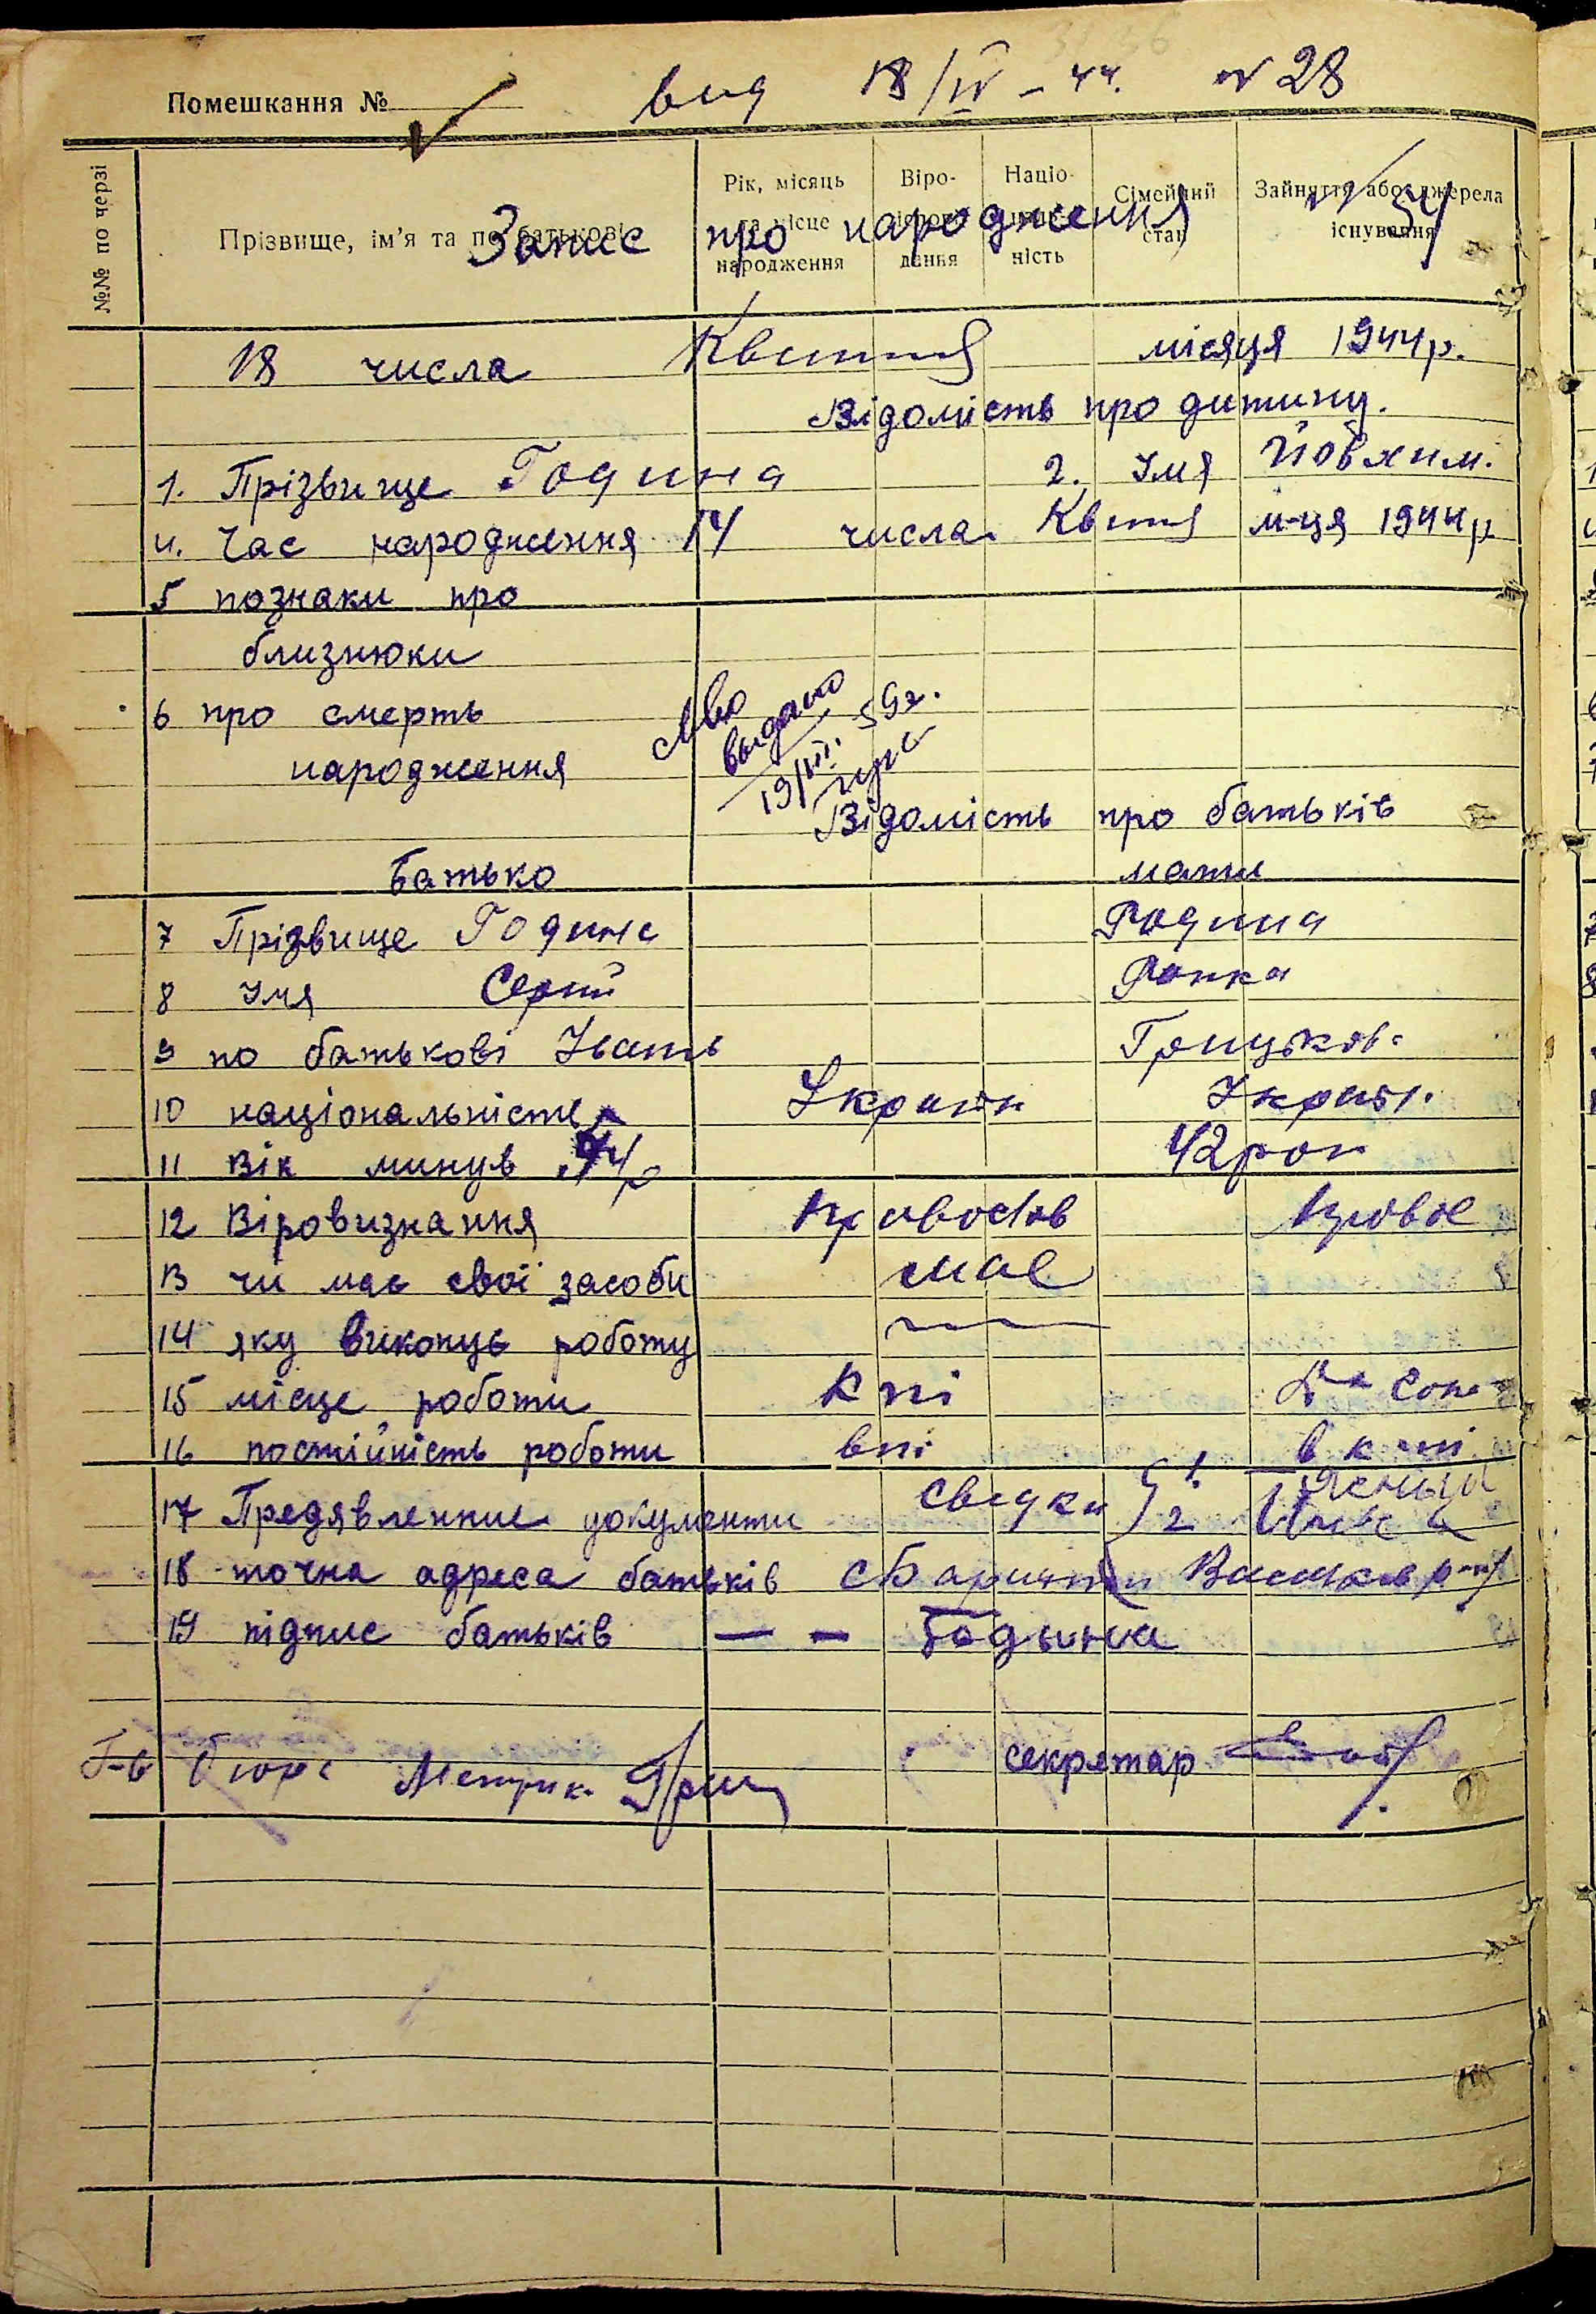 Помешкання №
вид 18/IV – 44. № 28
№№ по черзі
Прізвище, ім'я та по батькові
Рік, місяць та місце народження
Віросповідання
Національність
Сімейний стан
Зайняття або джерела існування
Запис про народження № 54
18 числа Квітня місяця 1944 р.
Відомість про дитину.
1. Прізвище Година 2. Імя Йовхим.
4. Час народження 14 числа Квітня м-ця 1944 р
5 познаки про
близнюки
6 про смерть
народження
выдано
19/III. 59г.
Відомість про батьків
Батько мати
7 Прізвище Година Година
8 Імя Сергій
9 по батькові Іван Грицьков.
10 національність Україн Україн.
11 Вік минув 42 рок
12 Віровизнання Православ Правос
13 чи має свої засоби має
14 яку виконує роботу
15 місце роботи
16 постійність роботи
17 Предявленние документи Сведки 1. 2
18 точна адреса батьків с
19 підпис батьків — – Годына
Бюро Метрик секретар